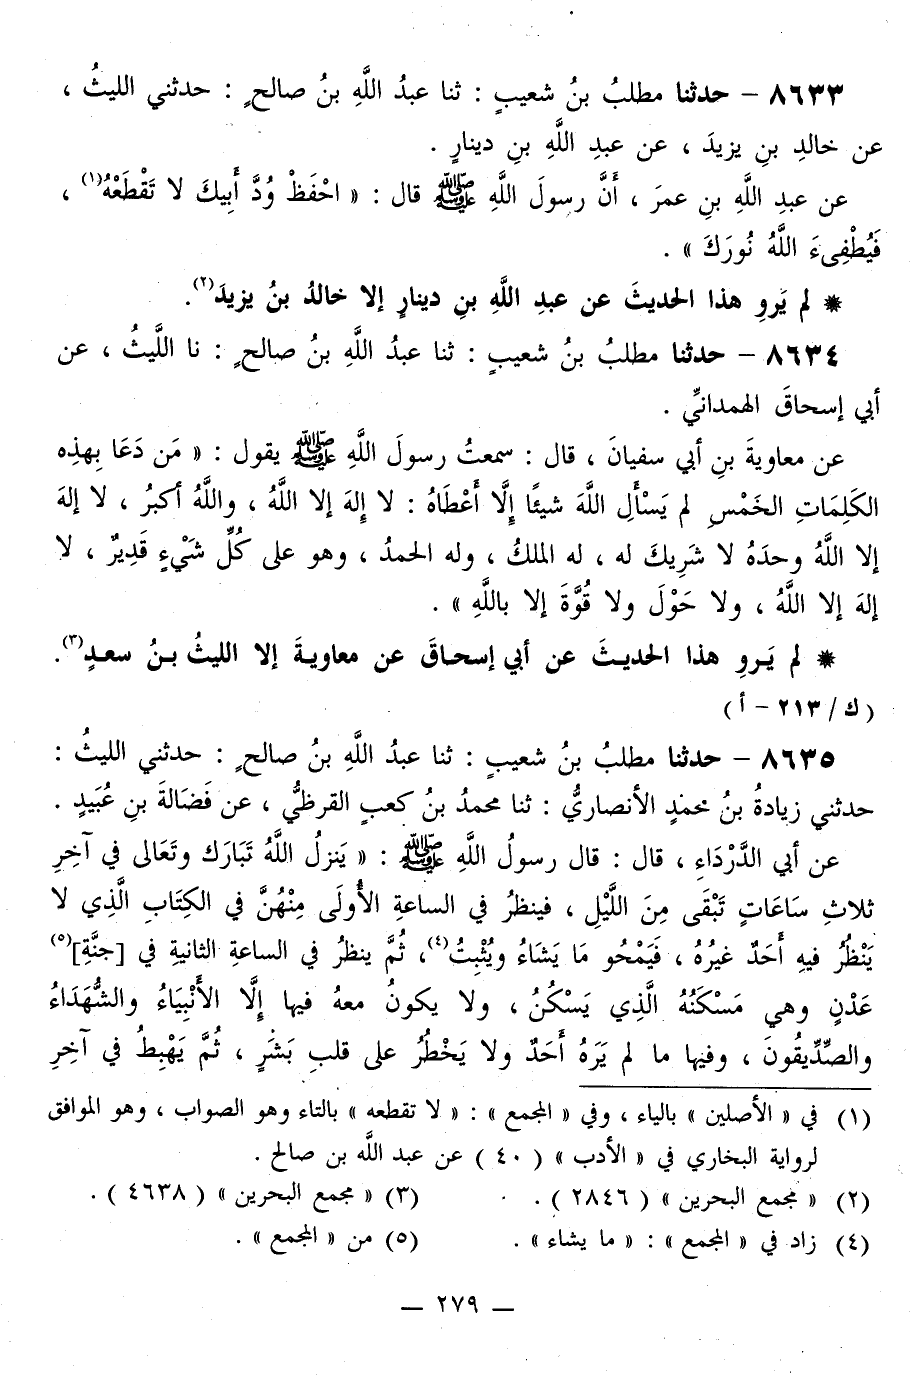 ٨٦٣٣ – حدثنا مطلبُ بنُ شعيبٍ : ثنا عبدُ اللَّهِ بنُ صالحٍ : حدثني الليثُ ،
عن خالدِ بنِ يزيدَ ، عن عبدِ اللَّهِ بنِ دينارٍ .
عن عبدِ اللَّهِ بنِ عمرَ ، أَنَّ رسولَ اللَّهِ ﷺ قال : « احْفَظْ وُدَّ أَبِيكَ لا تَقْطَعْهُ(١) ،
فَيُطْفِىءَ اللَّهُ نُورَكَ » .
* لم يَروِ هذا الحديثَ عن عبدِ اللَّهِ بنِ دينارٍ إلا خالدُ بنُ يزيدَ(٢).
٨٦٣٤ – حدثنا مطلبُ بنُ شعيبٍ : ثنا عبدُ اللَّهِ بنُ صالحٍ : نا اللَّيثُ ، عن
أبي إسحاقَ الهمدانيِّ .
عن معاويةَ بنِ أبي سفيانَ ، قال : سمعتُ رسولَ اللَّهِ ﷺ يقول : « مَن دَعَا بِهذِه
الكَلِمَاتِ الخَمْسِ لم يَسْأَلِ اللَّهَ شيئًا إِلَّا أَعْطَاهُ : لا إِلهَ إلا اللَّهُ ، واللَّهُ أكبرُ ، لا إلهَ
إلا اللَّهُ وحدَهُ لا شَرِيكَ له ، له الملكُ ، وله الحمدُ ، وهو على كُلِّ شَيْءٍ قَدِيرٌ ، لا
إلهَ إلا اللَّهُ ، ولا حَوْلَ ولا قُوَّةَ إلا باللَّهِ » .
* لم يَـروِ هذا الحديـثَ عن أبي إسحـاقَ عن معاويـةَ إلا الليثُ بـنُ سعـدٍ(٣).
( ك / ٢١٣ – أ )
٨٦٣٥ – حدثنا مطلبُ بنُ شعيبٍ : ثنا عبدُ اللَّهِ بنُ صالحٍ : حدثني الليثُ :
حدثني زيادةُ بنُ محمدٍ الأنصاريُّ : ثنا محمدُ بنُ كعبٍ القرظيُّ ، عن فَضَالةَ بنِ عُبَيدٍ .
عن أبي الدَّرْدَاءِ ، قال : قال رسولُ اللَّهِ ﷺ : « يَنزلُ اللَّهُ تَبَارَك وتَعَالى في آخِرِ
ثلاثِ سَاعَاتٍ تَبْقَى مِنَ اللَّيْلِ ، فينظرُ في الساعةِ الأُولَى مِنْهُنَّ في الكِتَابِ الَّذِي لا
يَنْظُرُ فيهِ أَحَدٌ غيرُهُ ، فَيَمْحُو مَا يَشَاءُ ويُثْبِتُ(٤)، ثُمَّ ينظرُ في الساعةِ الثانيةِ في [جنَّةِ](٥)
عَدْنٍ وهي مَسْكَنُهُ الَّذِي يَسْكُنُ ، ولا يكونُ معهُ فيها إِلَّا الأَنْبِيَاءُ والشُّهَدَاءُ
والصِّدِّيقُونَ ، وفيها ما لم يَرَهُ أَحَدٌ ولا يَخْطُرُ على قلبِ بَشَرٍ ، ثُمَّ يَهْبِطُ في آخِرِ
(١) في « الأصلين » بالياء ، وفي « المجمع » : « لا تقطعه » بالتاء وهو الصواب ، وهو الموافق
لرواية البخاري في « الأدب » ( ٤٠ ) عن عبد اللَّه بن صالح .
(٢) « مجمع البحرين » ( ٢٨٤٦ ) . (٣) « مجمع البحرين » ( ٤٦٣٨ ) .
(٤) زاد في « المجمع » : « ما يشاء » . (٥) من « المجمع » .
— ٢٧٩ —